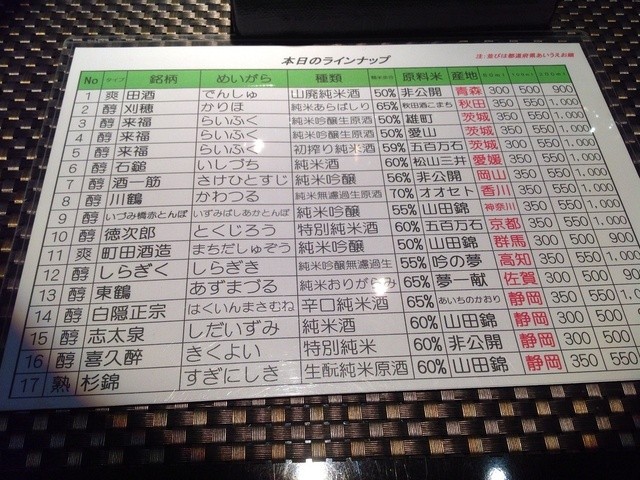 本日のラインナップ
注:並びは都道府県あいうえお順
No タイプ 銘柄 めいがら 種類 精米歩合 原料米 産地
1 爽 田酒 でんしゅ 山廃純米酒 50% 非公開 青森 300 500 900
2 醇 刈穂 かりほ 純米あらばしり 65% 秋田酒こまち 秋田 350 550 1,000
3 醇 来福 らいふく 純米吟醸生原酒 50% 雄町 茨城 350 550 1,000
4 醇 来福 らいふく 純米吟醸生原酒 50% 愛山 茨城 350 550 1,000
5 醇 来福 らいふく 初搾り純米酒 59% 五百万石 茨城 350 550 1,000
6 醇 石鎚 いしづち 純米酒 60% 松山三井 愛媛 350 550 1,000
7 醇 酒一筋 さけひとすじ 純米吟醸 56% 非公開 岡山 350 550 1,000
8 醇 川鶴 かわつる 純米無濾過生原酒 70% オオセト 香川 350 550 1,000
9 醇 いづみ橋赤とんぼ いずみばしあかとんぼ 純米吟醸 55% 山田錦 神奈川 350 550 1,000
10 醇 徳次郎 とくじろう 特別純米酒 60% 五百万石 京都 350 550 1,000
11 爽 町田酒造 まちだしゅぞう 純米吟醸 50% 山田錦 群馬 300 500 900
12 醇 しらぎく しらぎき 純米吟醸無濾過生 55% 吟の夢 高知 350 550 1,000
13 醇 東鶴 あずまづる 純米おりがらみ 65% 夢一献 佐賀 300 500 900
14 醇 白隠正宗 はくいんまさむね 辛口純米酒 65% あいちのかおり 静岡 350 550
15 醇 志太泉 しだいずみ 純米酒 60% 山田錦 静岡 300 500
16 醇 喜久酔 きくよい 特別純米 60% 非公開 静岡 300 500
17 熟 杉錦 すぎにしき 生酛純米原酒 60% 山田錦 静岡 350 550